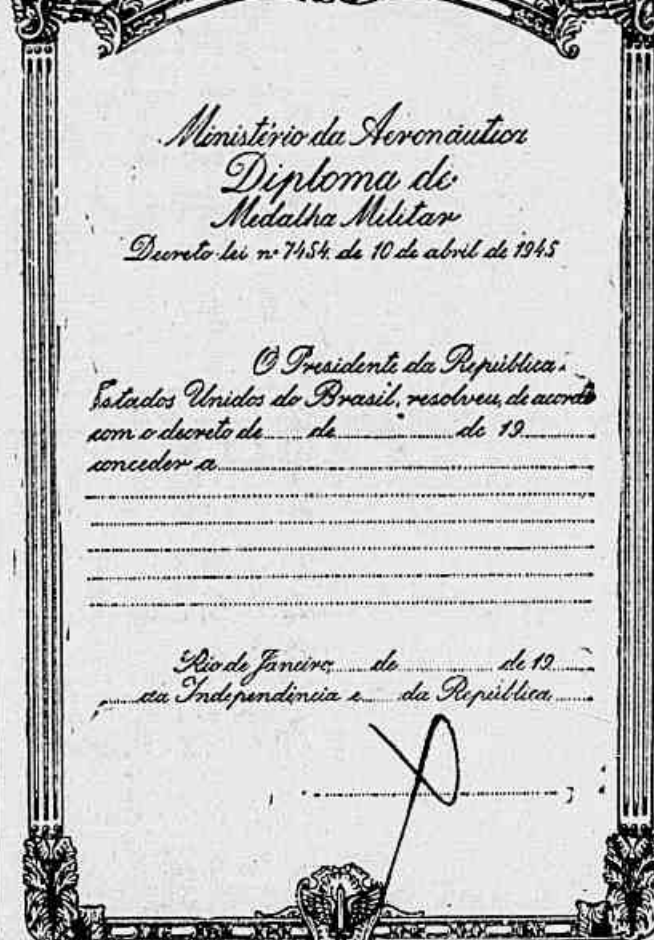 Ministério da Aeronáutica
Diploma de
Medalha Militar
Decreto-lei nº 7454, de 10 de abril de 1945
O Presidente da República
Estados Unidos do Brasil, resolveu, de acordo
com o decreto de ...... de .................. de 19..........
conceder a
Rio de Janeiro, ...... de .................. de 19......
...... da Independência e ...... da República ......